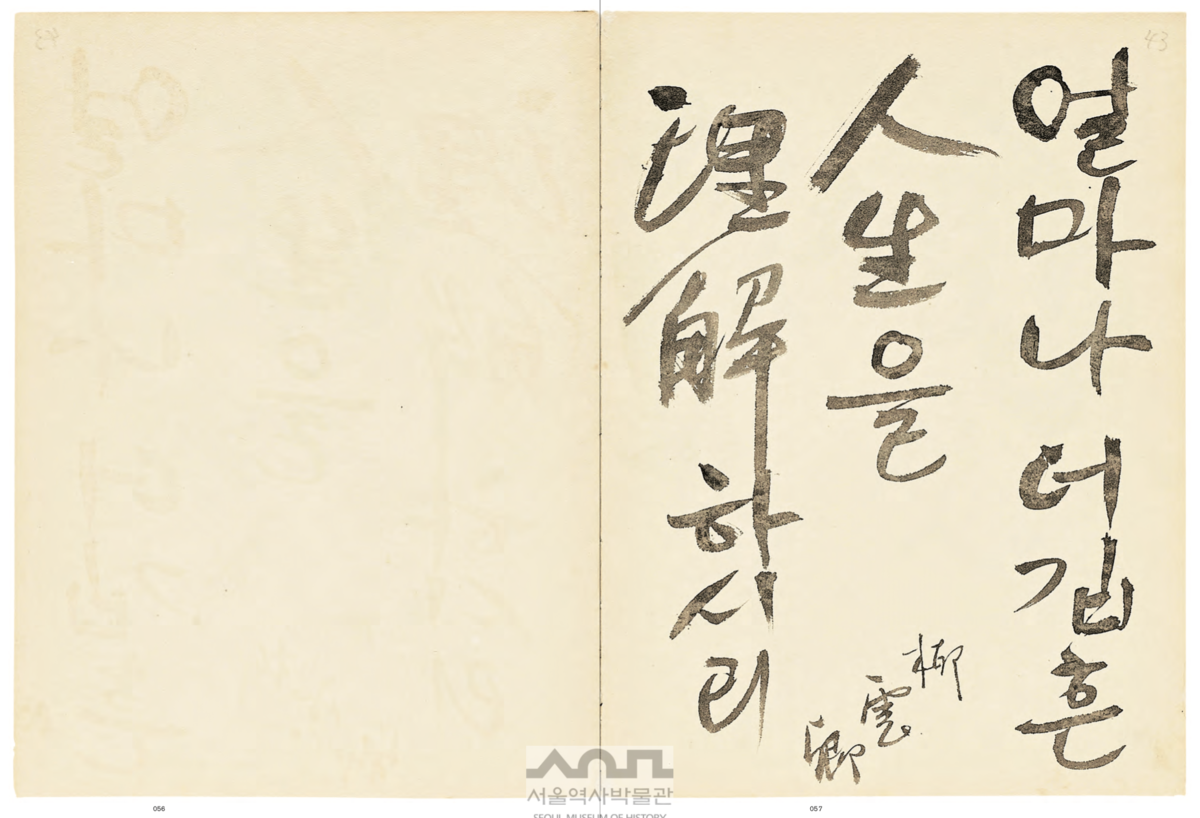 43
얼마나 더 깁흔
人生을
理解하시리
柳雲卿
서울역사박물관
SEOUL MUSEUM OF HISTORY
056
057